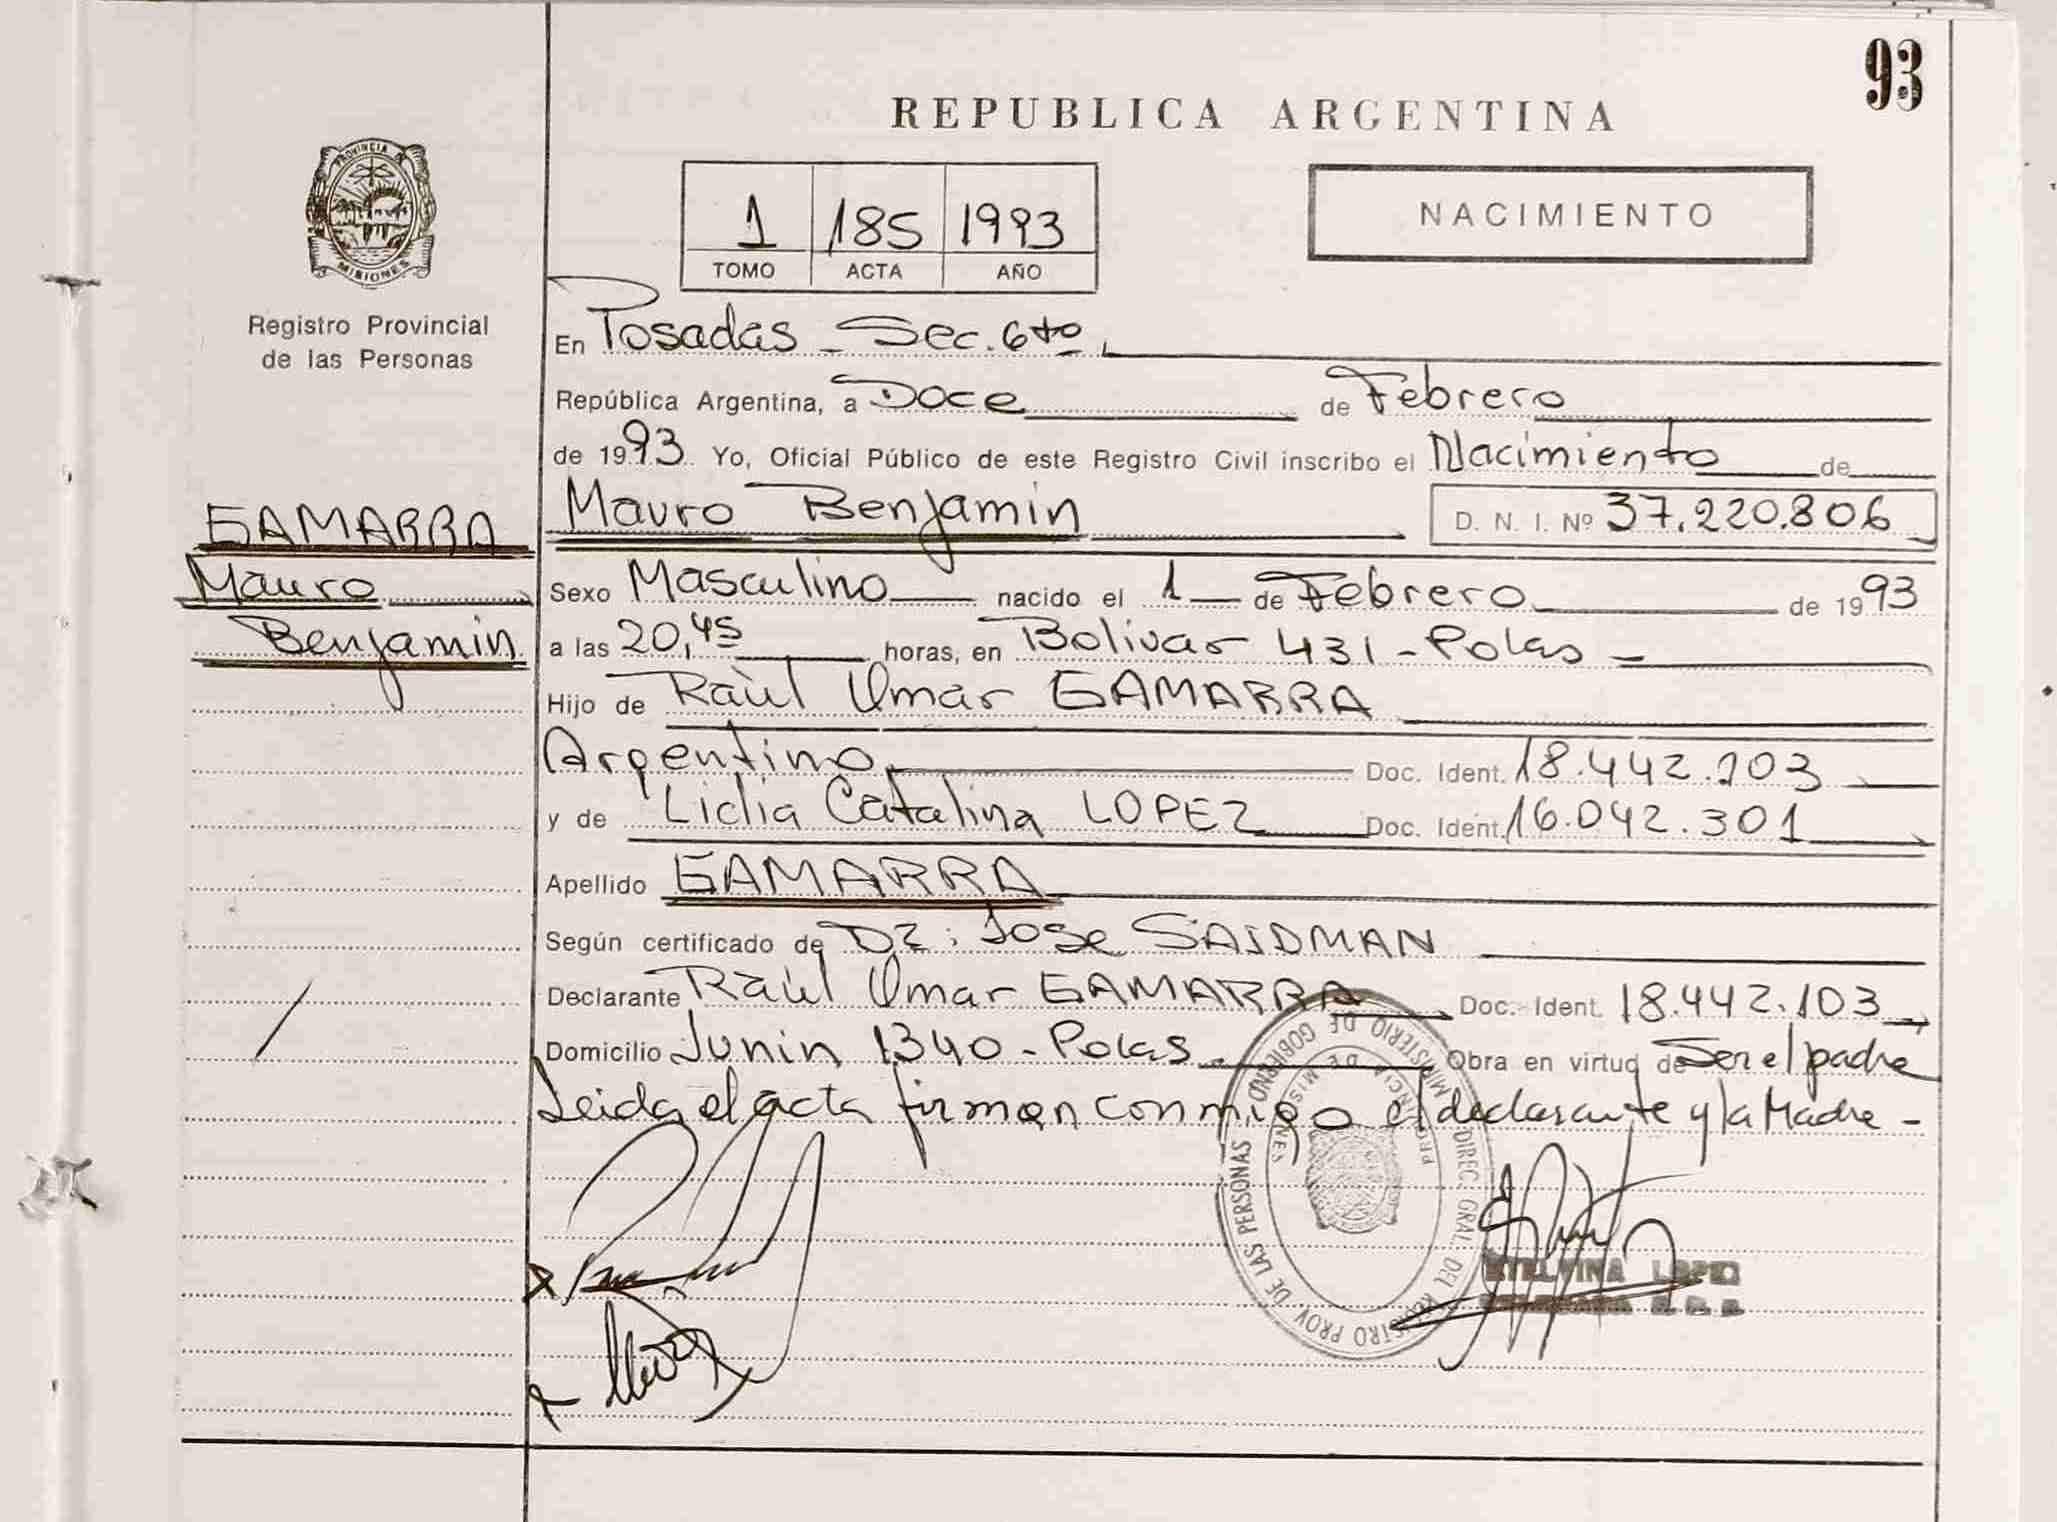 93
REPUBLICA ARGENTINA
PROVINCIA DE
MISIONES
Registro Provincial
de las Personas
1 185 1993
TOMO ACTA AÑO
NACIMIENTO
En Posadas - Sec. 6to
República Argentina, a Doce de Febrero
de 1993 Yo, Oficial Público de este Registro Civil inscribo el Nacimiento de
GAMARRA
Mauro
Benjamin
Mauro Benjamin D. N. I. Nº 37.220.806
Sexo Masculino nacido el 1 de Febrero de 1993
a las 20,45 horas, en Bolivar 431 - Pdas -
Hijo de Raúl Omar GAMARRA
Argentino Doc. Ident. 18.442.103
y de Lidia Catalina LOPEZ Doc. Ident. 16.042.301
Apellido GAMARRA
Según certificado de Dr. Jose SAIDMAN
Declarante Raúl Omar GAMARRA Doc. Ident. 18.442.103
Domicilio Junin 1340 - Pdas - Obra en virtud de Ser el padre
Leida el acta firman conmigo el declarante y la Madre -
MINISTERIO DE GOBIERNO
PROVINCIA DE MISIONES
DIREC. GRAL. DEL REGISTRO PROV. DE LAS PERSONAS
LOPEZ